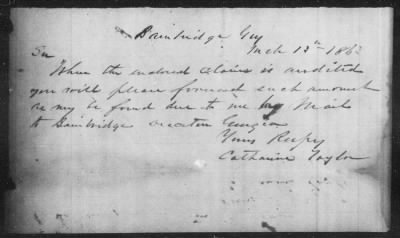 Bainbridge Ga
Mch 13th 1863
Sir
When the enclosed Claim is audited
you will please forward such amount
as may be found due to me by Mail
to Bainbridge Decatur Georgia
Yours Respy
Catharine Taylor